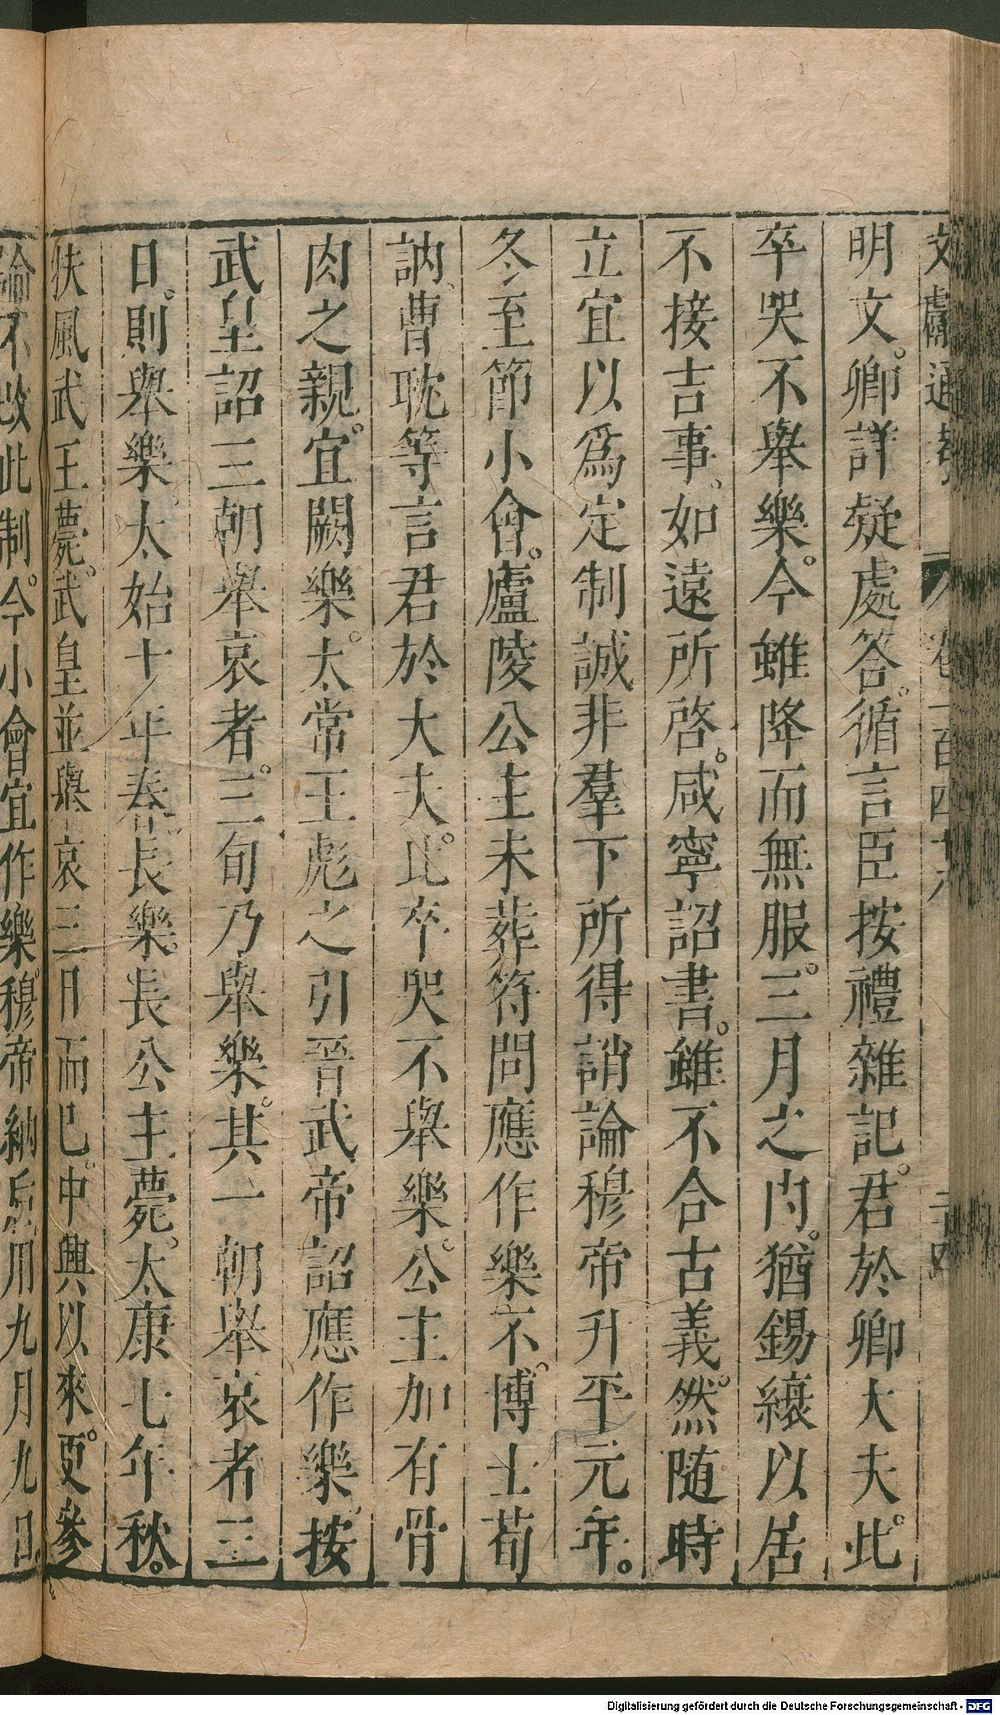 文獻通考 卷一百四十八 二十四
明文。卿詳疑處答。循言臣按禮雜記。君於卿大夫。此
卒哭不舉樂。今雖降而無服。三月之內。猶錫縗以居
不接吉事。如遠所啓。咸寧詔書。雖不合古義。然隨時
立宜以爲定制誠非羣下所得誚論穆帝升平元年。
冬至節小會。廬陵公主未葬符問應作樂不。博士荀
訥曹耽等言君於大夫。比卒哭不舉樂。公主加有骨
肉之親。宜闕樂。太常王彪之引晉武帝詔應作樂。按
武皇詔三朝舉哀者。三旬乃舉樂。其一朝舉哀者三
日。則舉樂。太始十年春。長樂長公主薨。太康七年秋。
扶風武王薨。武皇並舉哀三日而已。中興以來。更參
論不改此制。今小會宜作樂。穆帝納后用九月九日。
Digitalisierung gefördert durch die Deutsche Forschungsgemeinschaft - DFG